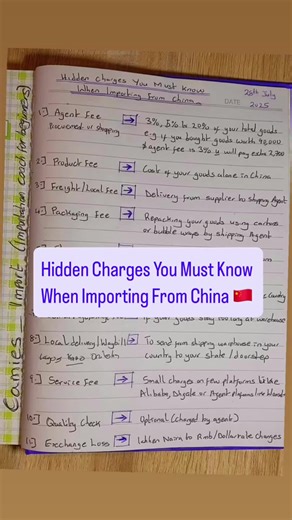 Hidden Charges You Must Know
When Importing From China
26th July
DATE 2025
1) Agent Fee → 3%, 5% to 20% of your total goods
Discovered or shopping e.g. if you bought goods worth 90,000
& agent fee is 3% u will pay extra 2,700
2) Product Fee → Cost of your goods alone in China
3) Freight/Local Fee → Delivery from supplier to shipping Agent
4) Packaging Fee → Repacking your goods using cartons
or bubble wraps by shipping Agent
Hidden Charges You Must Know
When Importing From China 🇨🇳
Country
if your goods stay long at warehouse
8) Local delivery/Waybill → To send from shipping warehouse in your
country to your state / doorstep
9) Service Fee → Small charges on few platforms like
Alibaba, or Agent
10) Quality Check → Optional (Charged by agent)
11) Exchange Loss → When Naira to Rmb/Dollar rate changes
Camies Import (Importation coach for beginners)